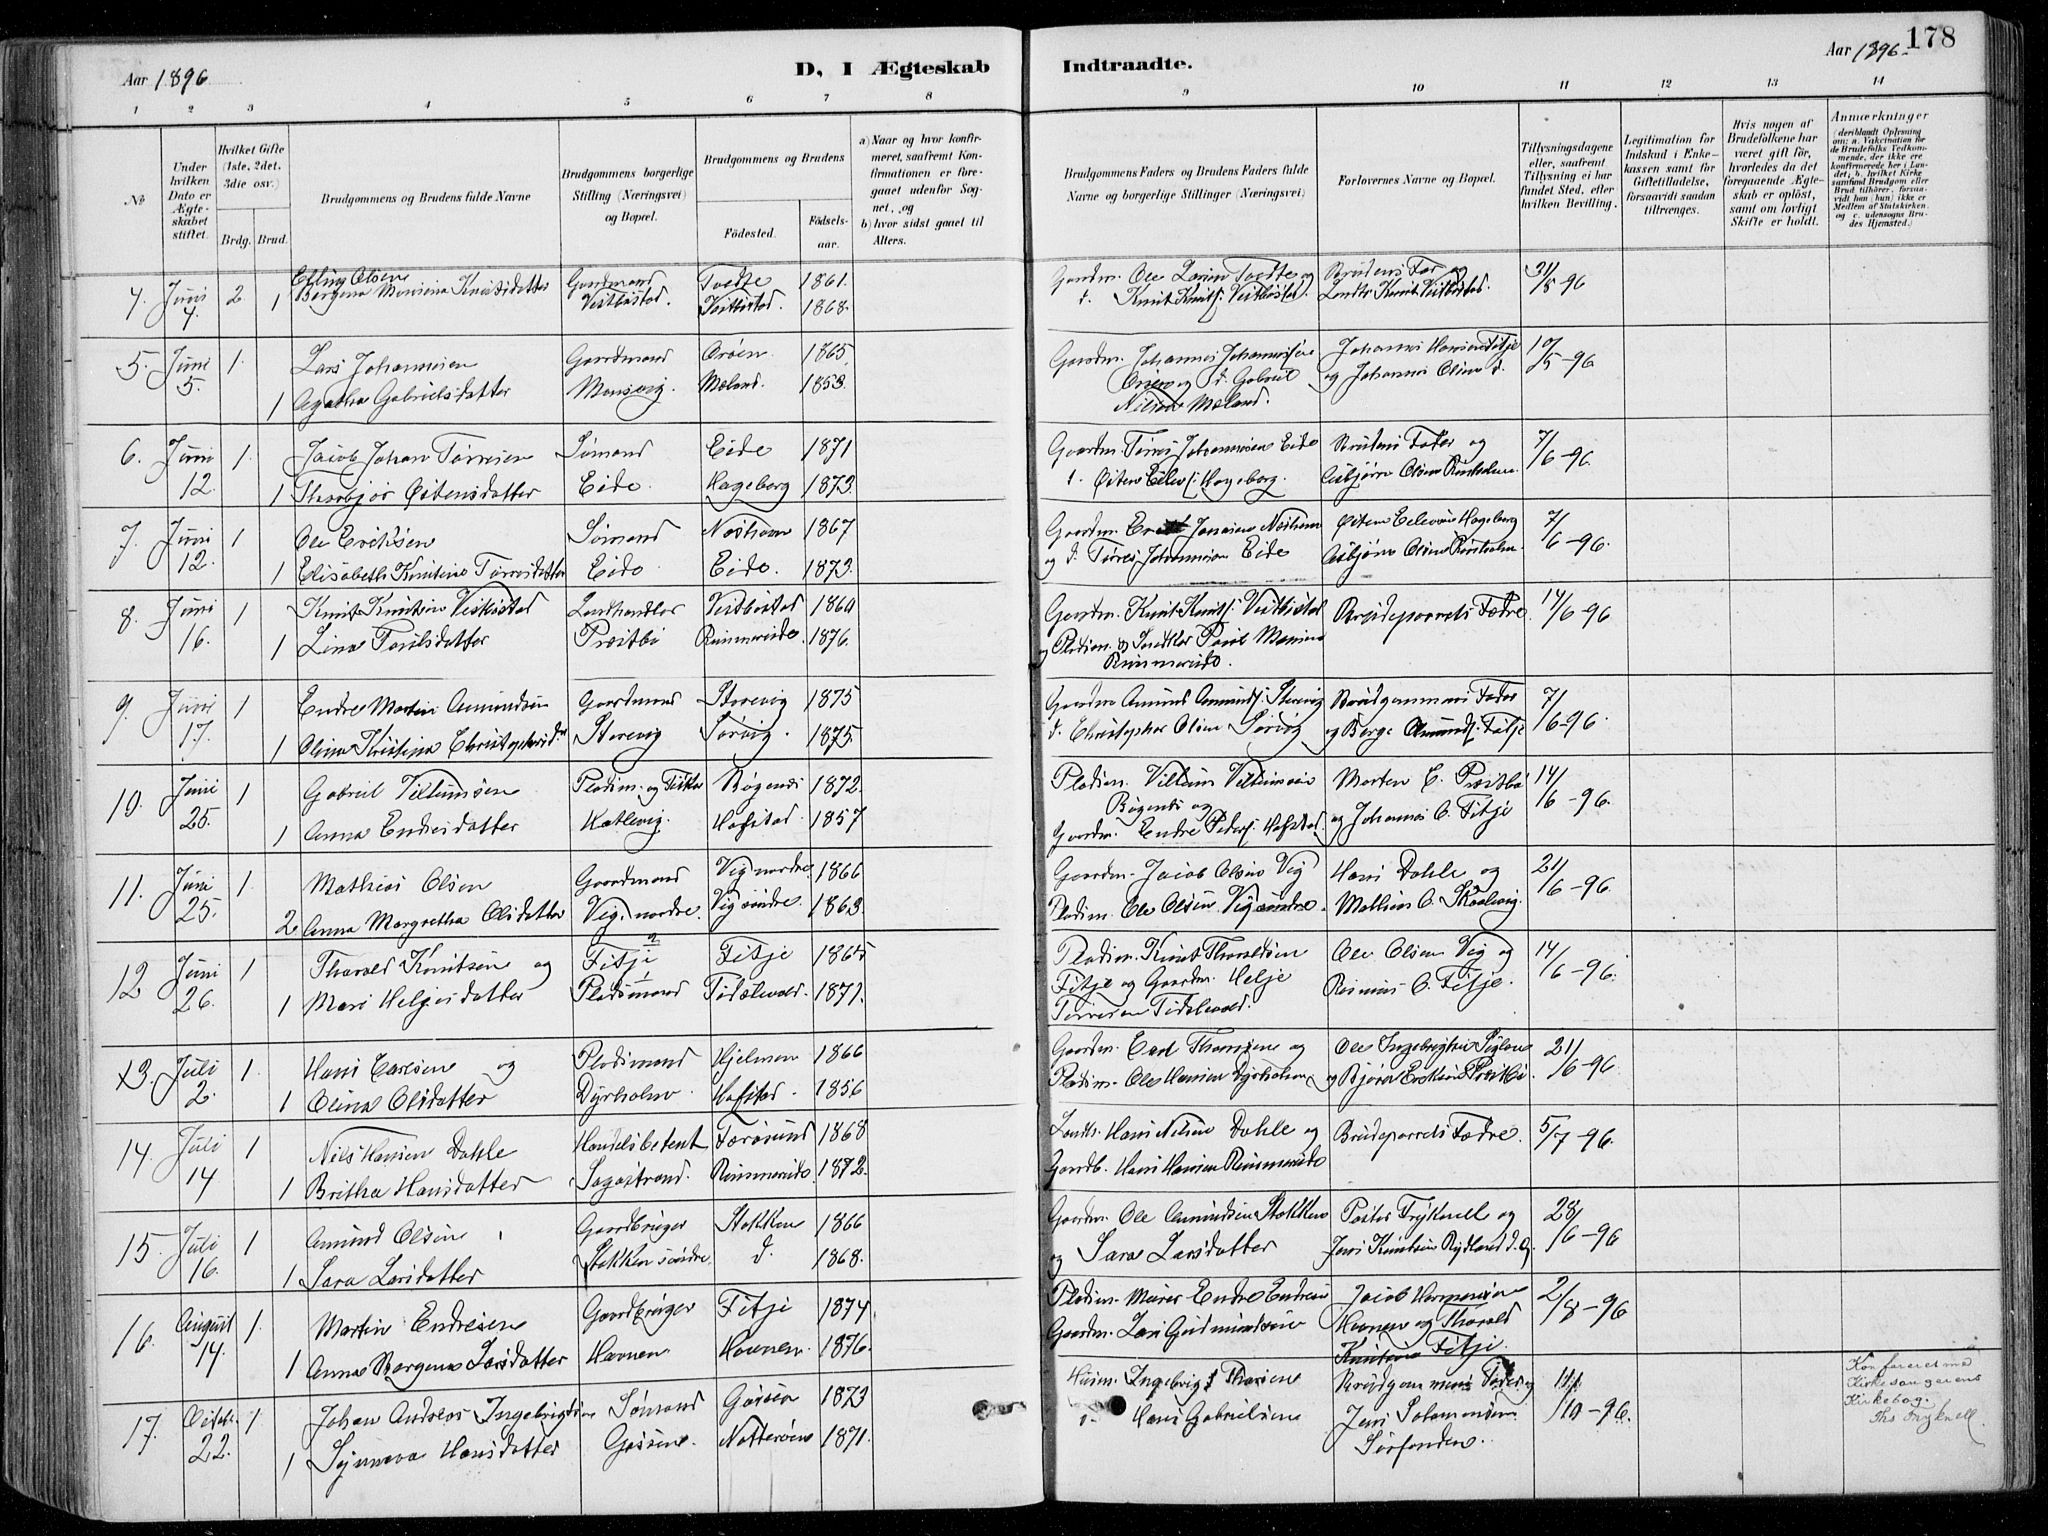 Aar 1896
D, I Ægteskab
Indtraadte.
Aar 1896
178
1 2 3 4 5 6 7 8 9 10 11 12 13 14
No
Under hvilken Dato er Ægteskabet stiftet.
Hvilket Gifte (1ste, 2det, 3die osv.)
Brdg. Brud.
Brudgommens og Brudens fulde Navne
Brudgommens borgerlige Stilling (Næringsvei) og Bopæl.
Brudgommens og Brudens
Fødested.
Fødselsaar.
a) Naar og hvor konfirmeret, saafremt Konfirmationen er foregaaet udenfor Sognet, og
b) hvor sidst gaaet til Alters.
Brudgommens Faders og Brudens Faders fulde Navne og borgerlige Stillinger (Næringsvei)
Forlovernes Navne og Bopæl.
Tillysningsdagene eller, saafremt Tillysning ei har fundet Sted, efter hvilken Bevilling.
Legitimation for Indskud i Enkekassen samt for Giftetilladelse, forsaavidt saadan tiltrænges.
Hvis nogen af Brudefolkene har været gift før, hvorledes da det foregaaende Ægteskab er opløst, samt om lovligt Skifte er holdt.
Anmærkninger (deriblandt Oplysning om: a. Vakcination for de Brudefolks Vedkommende, der ikke ere konfirmerede her i Landet; b. hvilket Kirkesamfund Brudgom eller Brud tilhører, forsaavidt han (hun) ikke er Medlem af Statskirken, og c. udensogns Brudes Hjemsted.)
4. Juni 2 Erling Olsen Gaardmand Tvedte 1861. Gaardm. Ole Larsen Tvedte og Brudens Far og 31/5 96
4. 1 Bergena Monsina Knutsdatter Vestbøstad. Vestbøstad. 1868. d. Knut Knuts. Vestbøstad. Landh. Knut Vestbøstad.
5. Juni 1. Lars Johannesen Gaardmand Orøen. 1865. Gaardm. Johannes Johannesøn Johannes Hansen Fitje 10/5 - 96
5. 1 Agatha Gabrielsdatter Monsvig. Mæland. 1853. Orøen og d. Gabriel og Johannes Olsen d.
Nilsen Mæland.
6. Juni 1. Jacob Johan Tørresen Sømand Eide 1871 Gaardm. Tørres Johannesen Eide Brudens Fader og 7/6 - 96.
12. 1 Thorbjør Østensdatter Eide. Hageberg 1873. d. Østen Eilevs. Hageberg. Asbjørn Olsen Rusholm.
7. Juni 1 Ole Eriksen Sømand Næsheim 1867 Gaardm. Erik Jonasen Næsheim Østen Eilevsen Hageberg 7/6 - 96.
12. 1 Elisabeth Knutine Tørresdatter Eide Eide. 1873. og d. Tørres Johannesen Eide Asbjørn Olsen Rusholm.
8. Juni 1 Knut Knutsen Vestbøstad Landhandler Vestbøstad 1860 Gaardm. Knut Knuts. Vestbøstad Brudeparrets Fædre. 14/6 - 96
16. 1 Lina Poulsdatter Præstbø Rimmereide. 1876. og Pladsm. og Landhdler Poul Monsen
Rimmereide.
9. Juni 1 Endre Martin Amundsen Gaardmand Storevig 1875 Gaardm. Amund Amunds. Storevig Brudgommens Fader 7/6 - 96.
17. 1 Olina Kristina Christophersdr. Storevig Sørvig. 1875. d. Christopher Olsen Sørvig og Berge Amunds. Fitje
10. Juni 1 Gabriel Villumsen Pladsm. og Fisker Bøgenes 1872. Pladsm. Villum Villumsen Morten E. Præstbø 14/6 - 96.
25. 1 Anna Endresdatter Katlevig. Hofstad. 1857 Bøgenes og og Johannes O. Fitje
Gaardm. Endre Peders. Hofstad.
11. Juni 1. Mathias Olsen Gaardmand Vig nordre. 1866 Gaardm. Jacob Olsen Vig Hans Dahle og 21/6 - 96.
25. 2 Anna Margretha Olsdatter Vig. nordre. Vig søndre. 1863. Pladsm. Ole Olsen Vig søndre. Mathias O. Skaalvig.
12 Juni 1 Thorald Knutsen og Fitje 2 Fitje 1865 Pladsm. Knut Thoraldsen Ole Olsen Vig og 14/6 - 96.
26. 1 Mari Helgesdatter Pladsmand 1 Tislevold. 1871. Fitje og Gaardm. Helje Rasmus O. Fitje.
Tørresen Tislevold.
13. Juli 1. Hans Carlsen og Pladsmand Hjelmen 1866 Gaardm. Carl Thomsene og Ole Ingebrigtsen 21/6 - 96
2. 1 Olina Olsdatter Dyrholm. Hofstad. 1856 Pladsm. Ole Hansen Dyrholm og Bjørn Præstbø.
14. Juli 1 Nils Hansen Dahle Handelsbetjent Færøsund 1868 Landh. Hans Nilsen Dahle og Brudeparrets Fædre. 5/7 - 96.
14 1 Britha Hansdatter Sagastrand. Rimmereide 1872. Gardb. Hans Hansen Rimmereide
15. Juli 1 Amund Olsen Gaardbruger Stokken 1866 Gaardm. Ole Amundsen Stokken Pastor Fryknell og 28/6 - 96
16. 1 Sara Larsdatter Stokken søndre. d. 1868. og Sara Larsdatter Jens Knutsen Rydland d. 
16. August 1. Martin Endresen Gaardbruger Fitje 1874. Pladsm. Murer Endre Endresen Jacob Hermansen 2/8 - 96
14. 1 Anna Bergena Larsdatter Havnen Havnen. 1876. Gaardm. Lars Gudmundsen Havnen og Thorald
Knutsen Fitje.
17. Octob. 1. Johan Andreas Ingebrigtsen Sømand Gaasøen 1873 Husm. Ingebrigt Thorsene Brudgommens Fader og 11/10 - 96.
22. 1 Synneva Hansdatter Gaasøen. Notterøen 1871. d. Hans Gabrielsene Jens Salomonsen
Sørfonden.
Konfereret med
Kirkesangerens
Kirkebog.
Ths Fryknell.